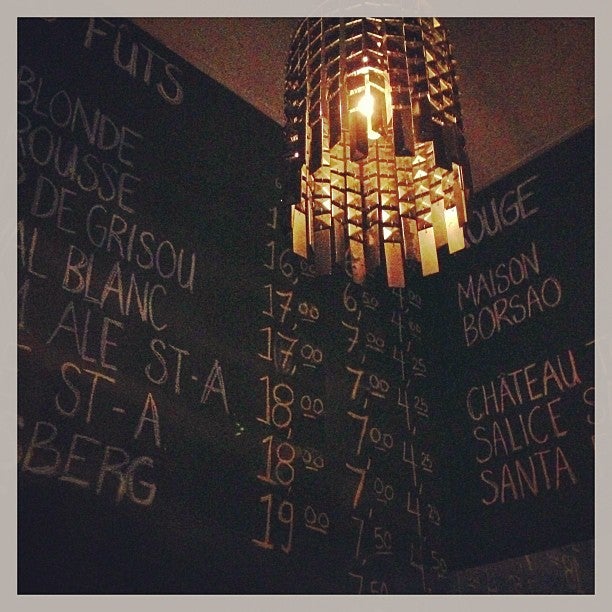 FÛTS
BLONDE
ROUSSE
DE GRISOU
BLANC
ALE ST-A
ST-A
BERG
16,00 6,50 4,
17,00 7,00 4,25
17,00 7,00 4,25
18,00 7,00 4,25
18,00 7,00 4,25
19,00 7,50
7,50
ROUGE
MAISON
BORSAO
CHÂTEAU
SALICE
SANTA